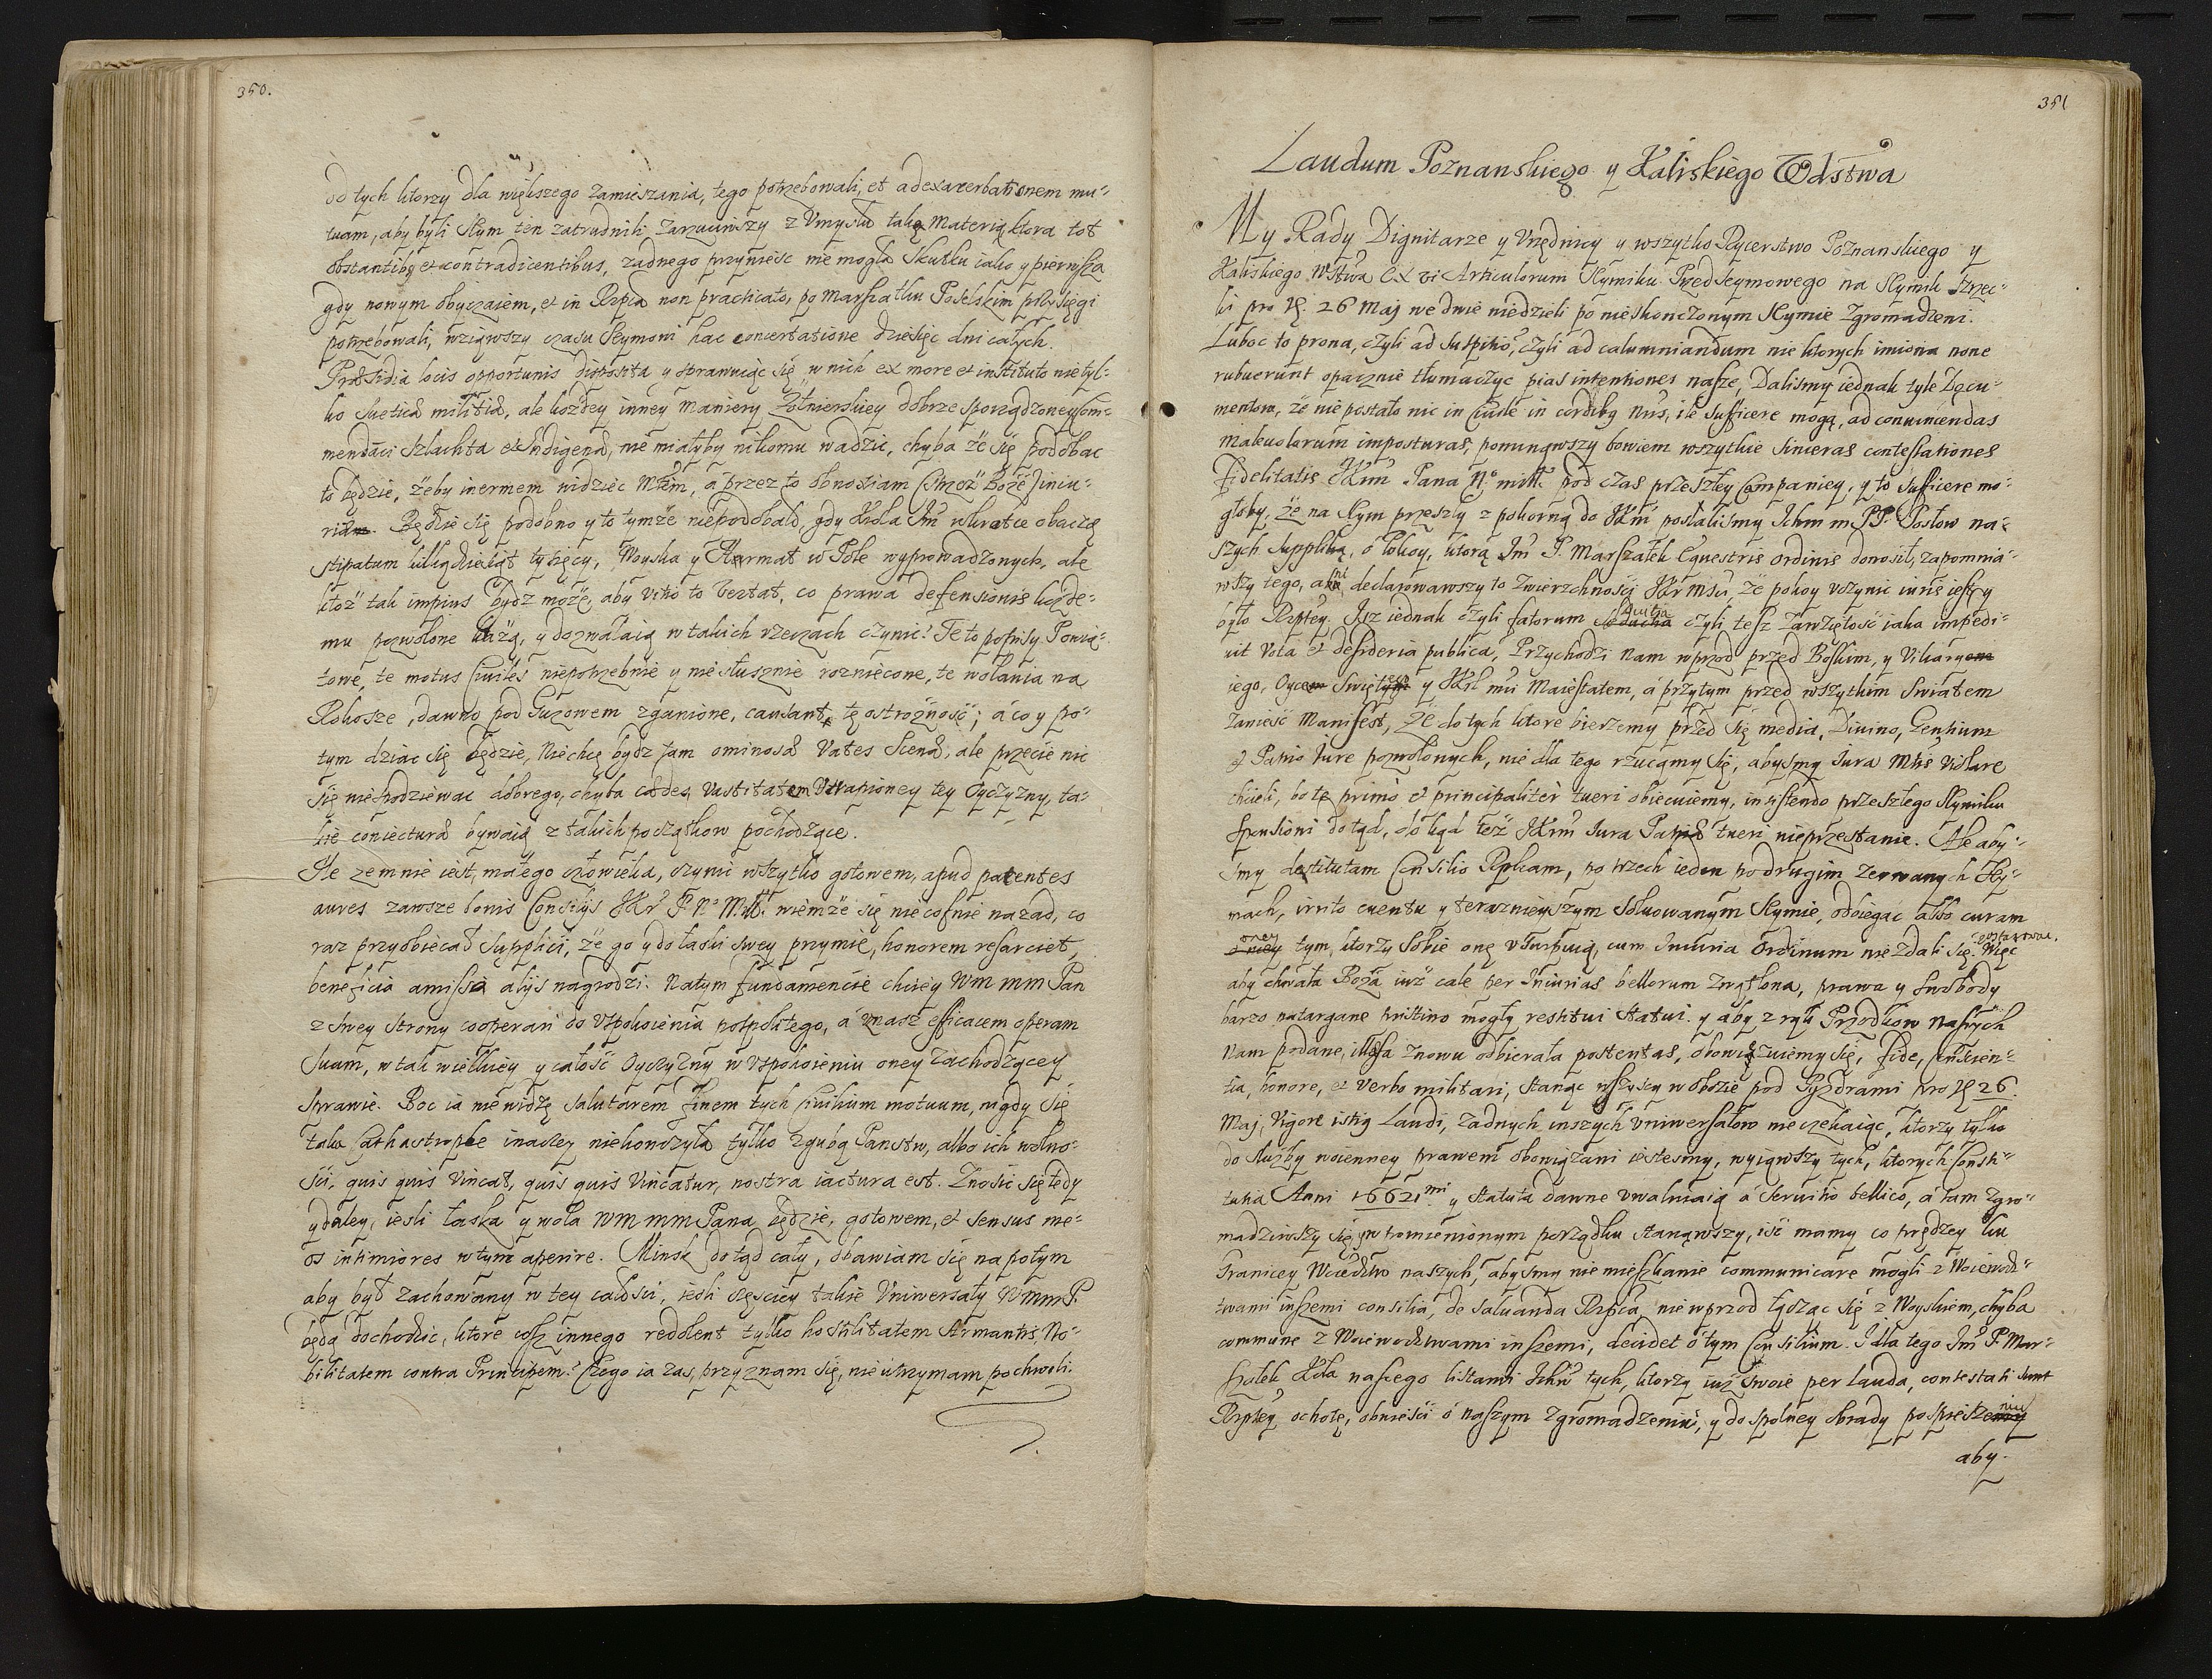 350.
od tych ktorzy dla większego zamieszania, tego potrzebowali, et ad exacerbationem mu-
tuam, aby byli Seym ten zatrudnili zarzuciwszy z Vmysłu taką Materią ktora tot
obstantibq et contradicentibus, zadnego przynieść nie mogła Skutku iako y pierwsza
gdy nowym obyczaiem, et in Rzpca non practicato, po Marszałku Poselskim przysięgi
potrzebowali, wziąwszy czasu Seymowi hac concertatione dziesięc dni całych.
Præsidia locis opportunis disposita y sprawuiąc się w nich ex more et instituto nie tyl-
ko Suetica militia, ale kożdey inney maniery Żołnierskiey dobrze sporządzoney Com-
mendaci Szlachta et Indigena, nie miałyby nikomu wadzic, chyba że się podobac
to będzie, żeby inermem widziec Mtem, á przez to obnoxiam Strzeż Boże Iniu-
riæ. Będzie się podobno y to tymże niepodobało, gdy Krola Im wkrotce obaczą
stipatum kilkądziesiąt tysięcy, Woyska y Harmat w Pole wyprowadzonych, ale
ktoż tak impius bydz może, aby vitio to vertat, co prawa defensionis kożde-
mu pozwolone każą, y dozwalaią w takich rzeczach czynic? Te to popisy Powia-
towe, te motus Ciuiles niepotrzebnie y niesłusznie rozniecone, te wołania na
Rokosze, dawno pod Guzowem zganione, causant tę ostrożność; á co y po-
tym dziac się będzie, Niechcę bydz tam ominosæ Vates Scenæ; ale przecie nic
się niespodziewac dobrego, chyba cædes, vastitatem Vtrapioney tey Oyczyzny, ta-
kie coniecturæ bywaią z takich początkow pochodzące.
Ile zemnie iest, małego człowieka, czynic wszytko gotowem, apud patentes
aures zawsze bonis Consilijs JKr P. No Młł. wiem że się nie cofnie nazad, co
raz przyobiecał Supplici, że go y do łaski swey przymie, honorem resarciet,
beneficia amissa alijs nagrodzi. Natym fundamencie chciey Wm mm Pan
z swey strony cooperari do Vspokoienia pospolitego, á znasz efficacem operam
suam, w tak wielkiey y całość Oyczyzny w Vspokoieniu oney zachodzącey
sprawie. Boc ia nie widzę salutarem finem tych Ciuilium motuum, nigdy się
taka Cathastrophe inaczey niekonczyła tylko zgubą Panstw, albo ich wolno-
ści, quis quis Vincat, quis quis Vincatur, nostra iactura est. Znosić się tedy
y daley, iesli łaska y wola Wm mm Pana będzie, gotowem, et sensus me-
os intimiores w tym aperire. Minsk dotąd cały, obawiam się napotym
aby był zachowany w tey całości, iesli częściey takie Vniwersały Wmm P.
będą dochodzic, ktore coss innego redolent tylko hostilitatem Armantis No-
bilitatem contra Principem? Czego ia zas, przyznam się, nie utrzymam pochwoli.
351
Laudum Poznanskiego y Kaliskiego Wdstwa
My Rady Dignitarze y Vrzędnicy y wszytko Rycerstwo Poznanskiego y
Kaliskiego Wstwa Ex vi Articulorum Seymiku Przedseymowego na Seymik Szrzec-
ki pro 26 Maj we dwie niedzieli po nieskonczonym Seymie Zgromadzeni.
Luboc to prona, czyli ad suspitio, czyli ad calumniandum nie ktorych imiona none
rubuerunt opacznie tłumaczyc pias intentiones nasze, Dalismy iednak tyle Docu-
mentow, że nie postało nic in Ciuile in cordibq nris, ile sufficere mogą, ad conuincendas
maleuolorum imposturas, pominąwszy bowiem wszytkie sinceras contestationes
Fidelitatis JKrm Pana No miłł. pod czas przeszłey Campaniey, y to sufficere mo-
głoby, że na Seym przeszły z pokorną do JKm posłalismy Ichm m PP. Posłow na-
szych Suppliką, ó Pokoy, ktorą Im P. Marszałek Equestris Ordinis donosił, zapomnia-
wszy tego, ani declarowawszy to Zwierzchności JKr Msci, że pokoy vczynic iuris iest y
było Rzptey. Isz iednak czyli fatorum sæuitia czyli tesz zawziętość iaka impedi-
uit Vota et desideria publica, Przychodzi Nam wprzod przed Boskim, y Vikarego
iego, Oyca Swiętego y JKrl mci Maiestatem, á przytym przed wszytkim Swiatem
zanieść Manifest, Że do tych ktore bierzemy przed się media, Diuino, Gentium
et Patrio Iure pozwolonych, nie dla tego rzucamy się, abysmy Iura Mtis violare
chcieli, bo te primò et principaliter tueri obiecuiemy, insistendo przeszłego Seymiku
sponsioni dotąd, dokąd też JKrm Iura Patria tueri nieprzestanie. Ale aby-
smy destitutam Consilio Rzplcam, po trzech ieden po drugim zerwanych Sey-
mach, irrito euentu y terazniejszym soluowanym Seymie, odbiegac albo curam
oney tym, ktorzy sobie onę vsurpuią, cum Iniuria Ordinum niezdali się zostawowac. Więc
aby chwała Boża iuż cale per Iniurias bellorum zwątlona, prawa y swobody
barzo natargane pristino mogły restitui statui. y aby z rąk Przodkow Naszych
Nam podane, illæsa znowu odbierała posteritas, obowiązuiemy się, fide, conscien-
tia, honore, et verbo militari, stanąc wszyscy w obozie pod Pyzdrami pro 26.
Maj, Vigore istius Laudi, żadnych inszych Vniwersałow nie czekaiąc, ktorzy tylko
do służby woienney prawem obowiązani iestesmy, wyiąwszy tych, ktorych Consti-
tutia Anni 1662mi y statuta dawne vwalniaią á seruitio bellico, á tam zgro-
madziwszy się w pomienionym porządku stanąwszy, iść mamy co prędzey ku
Granicey Woiedztw naszych, abysmy nie mieszkanie communicare mogli z Woiewodz-
twami inszemi consilia, de saluanda Rzpca, nie wprzod łącząc się z Woyskiem, chyba
commune z Woiewodztwami inszemi, decidet ó tym Consilium. I dla tego Im P. Mar-
szałek Koła naszego listami Ichm tych, ktorzy iuż swoie per lauda, contestati sunt
Rzptey ochotę, obwieści ó naszym zgromadzeniu, y do spolney obrady pospieszeniu
aby.